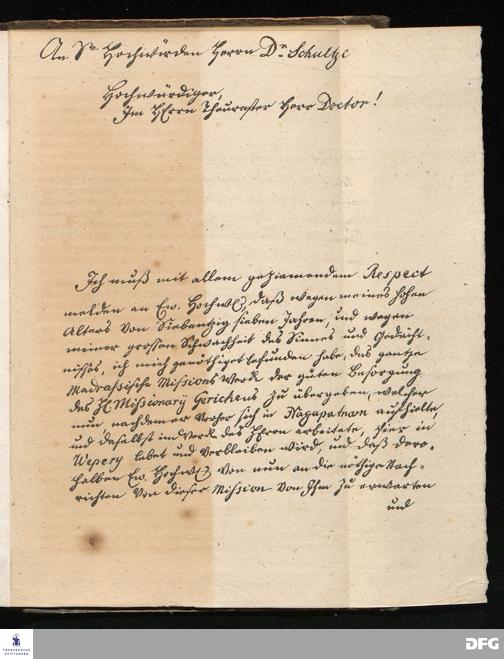 An Sr Hochwürden Herrn Dr. Schultze
Hochwürdiger,
Im HErrn Theurester Herr Doctor!
Ich muß mit allem geziemendem Respect
melden an Ew. Hochw, daß wegen meines hohen
Alters von Siebentzig sieben Jahren, und wegen
meiner grossen Schwachheit des Sinnes und Gedächt-
nisses, ich mich genöthiget befunden habe, das gantze
Madrassische Missions Werk der guten Besorgung
des H Missionarij Gerickens zu übergeben, welcher
nun nachdem er vorher sich in Nagapatnam aufhielte,
und daselbst im Werk des HErrn arbeitete, hier in
Wepery lebet und verbleiben wird, und daß dero-
halben Ew. Hochw von nun an die nöthige Nach-
richten von dieser Mission von Ihm zu erwarten
und
FRANCKESCHE
STIFTUNGEN
DFG